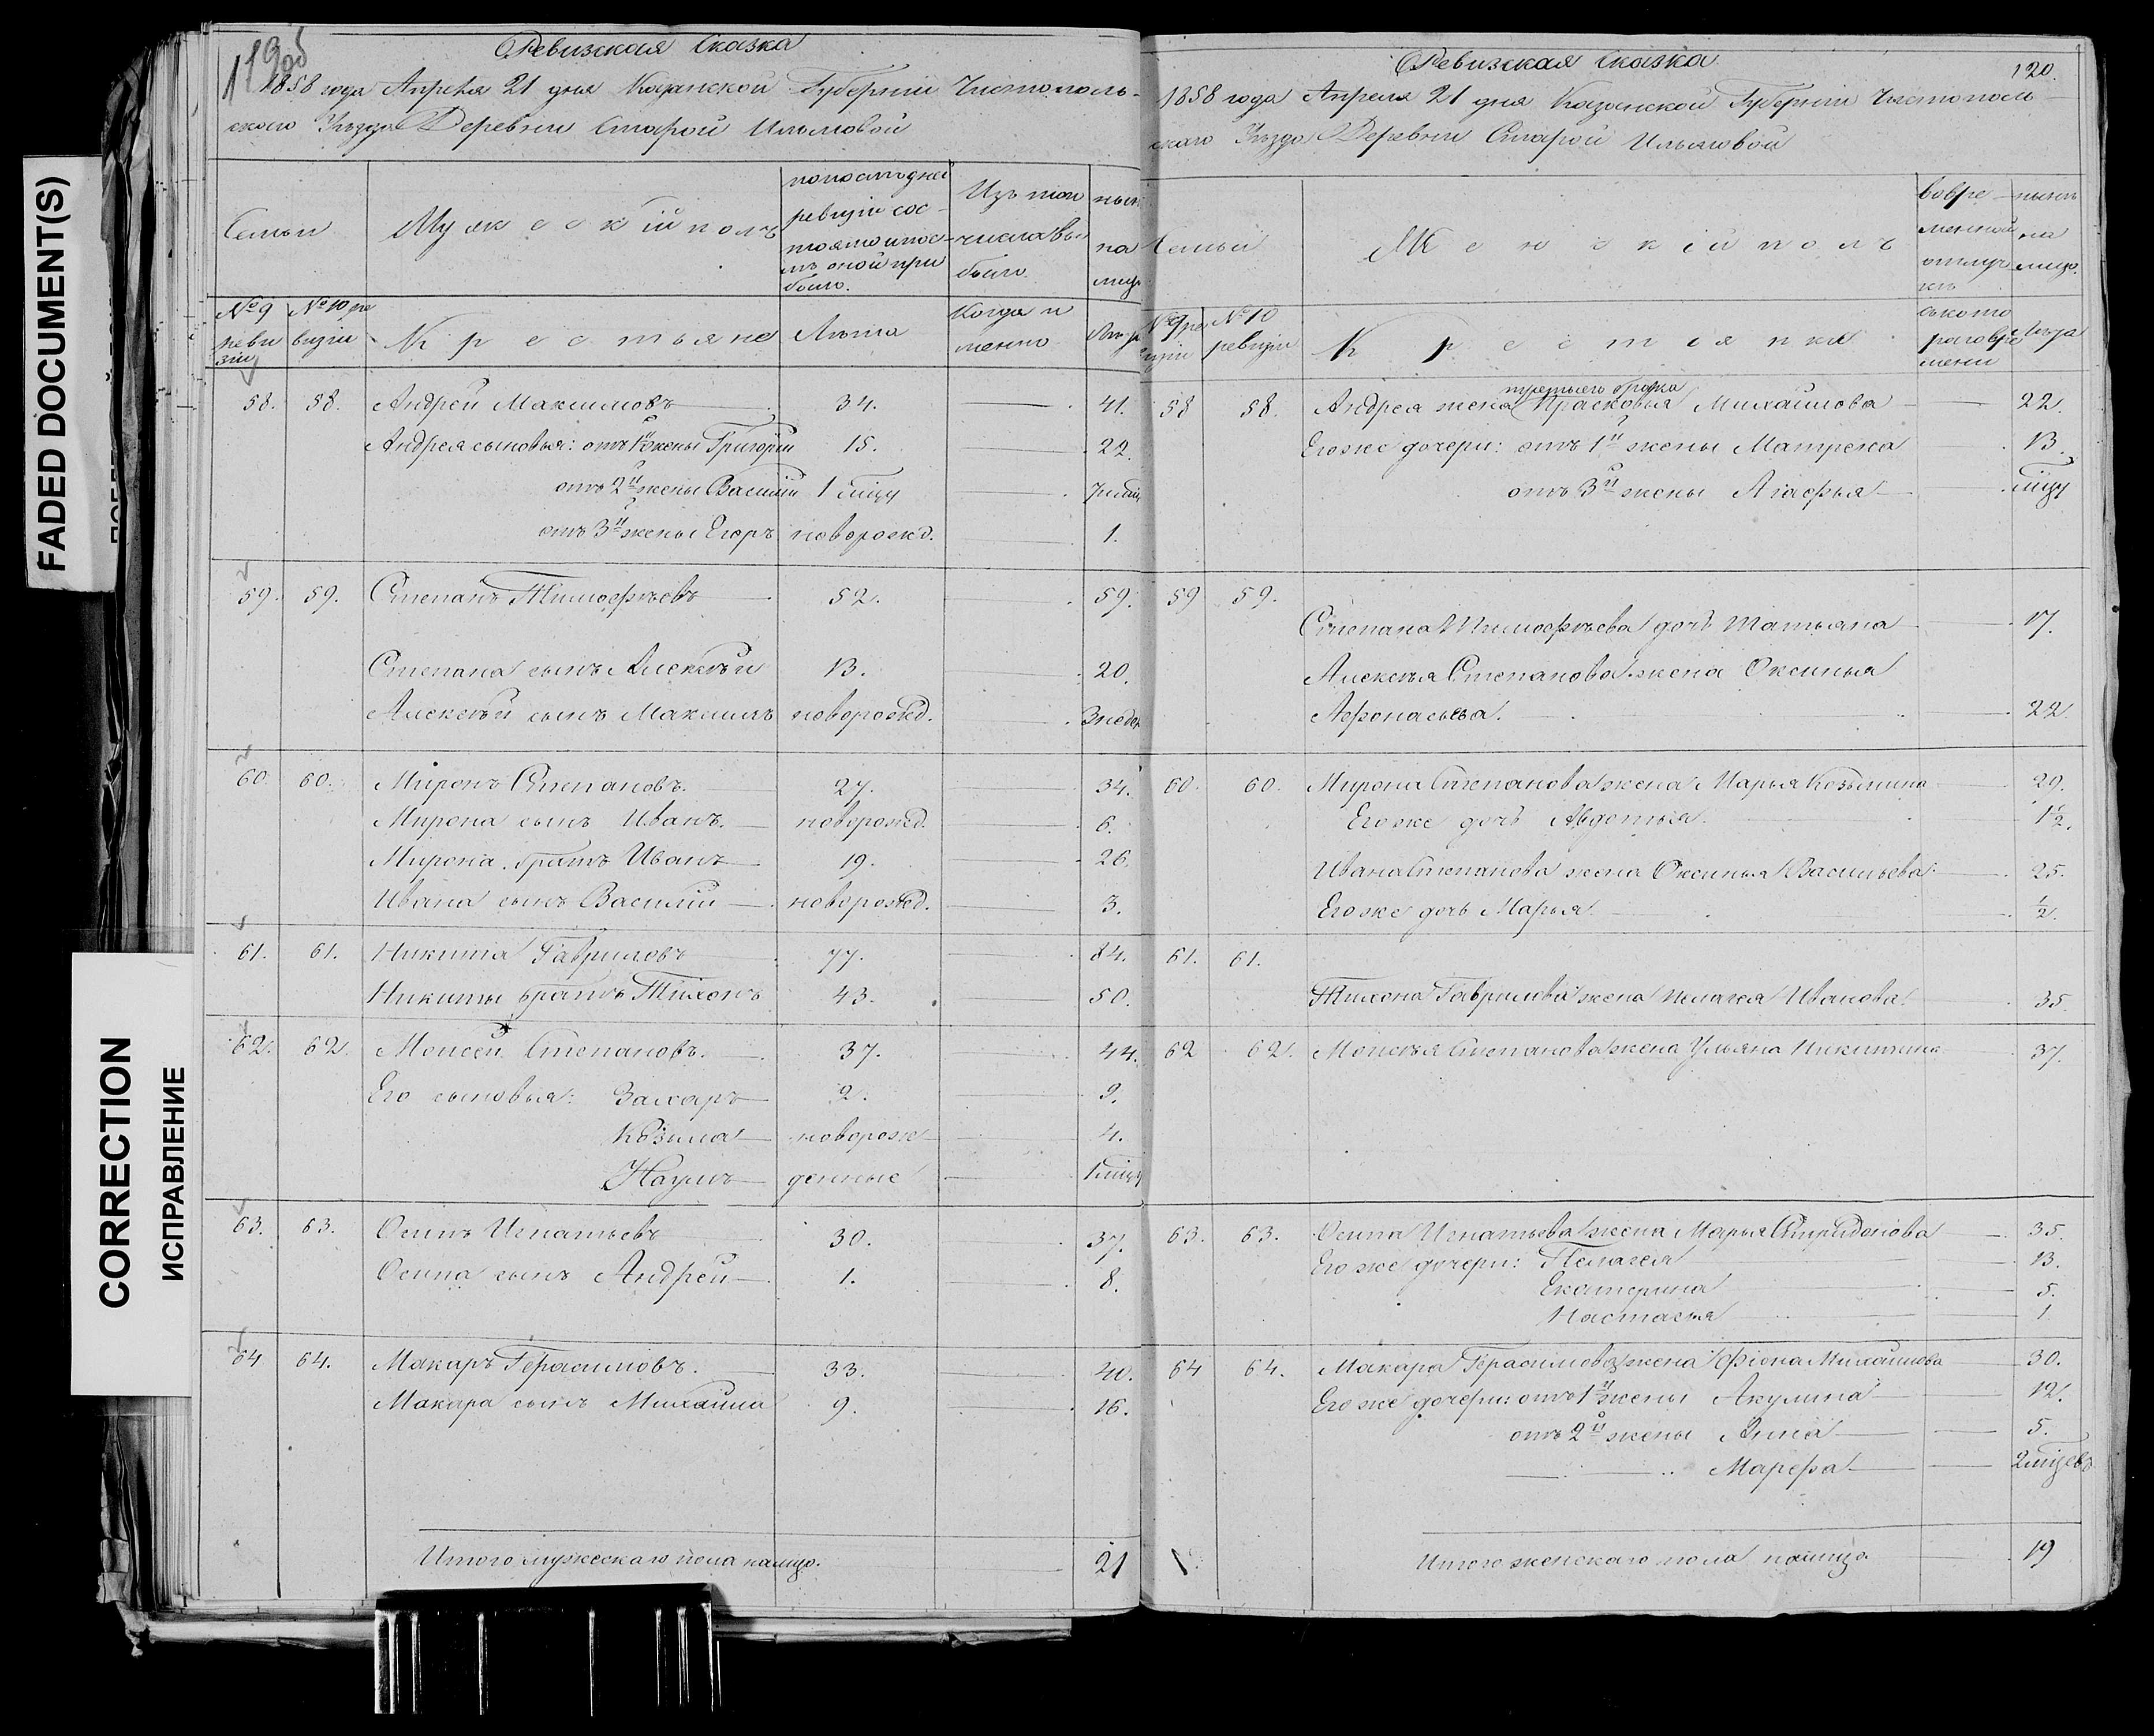 FADED DOCUMENT(S)
CORRECTION
ИСПРАВЛЕНИЕ
119об
Ревизская Сказка
1858 года Апреля 21 дня Казанской Губерніи Чистополь-
скаго Уѣзда Деревни Старой Ильмовой
Семьи
Мужескій полъ
По последней ревизіи состояло и послѣ оной прибыло.
Изъ того числа выбыло.
ныне на лицо
№ 9 ревизіи
№ 10 ревизіи
Крестьяне
Лѣта
Когда именно
58. 58. Андрей Максимовъ 34. 41.
Андрея сыновья: отъ 1й жены Григорій 15. 22.
отъ 2й жены Василій 1 мѣцу
отъ 3й жены Егоръ новорожд. 1.
59. 59. Степанъ Тимофѣевъ 52. 59.
Степана сынъ Алексѣй 13. 20.
Алексѣй сынъ Максимъ новорожд. 3 недел
60. 60. Миронъ Степановъ. 27. 34.
Мирона сынъ Иванъ. новорожд. 6.
Мирона братъ Иванъ 19. 26.
Ивана сынъ Василій новорожд. 3.
61. 61. Никита Гавриловъ 77. 84.
Никиты братъ Тихонъ 43. 50.
62. 62. Моисей Степановъ. 37. 44.
Его сыновья: Захаръ 2. 9.
Козьма новорож- 4.
Наумъ денные 1 мѣцу
63. 63. Осипъ Игнатьевъ 30. 37.
Осипа сынъ Андрей 1. 8.
64 64. Макаръ Герасимовъ. 33. 40.
Макара сынъ Михайла 9. 16.
Итого мужескаго пола налицо. 21
120.
Ревизская Сказка
1858 года Апреля 21 дня Казанской Губерніи Чистополь
скаго Уѣзда Деревни Старой Ильмовой
Семьи
Женскій полъ
во временной отлучкѣ
нынѣ на лицо.
№ 9 ревизіи
№ 10 ревизіи
Крестьянки
съ котораго времени
Лѣта
третьего брака
58 58. Андрея жена Прасковья Михайлова 22.
Его же дочери: отъ 1й жены Матрена 13.
отъ 3й жены Агафья мѣцу
59 59.
Степана Тимофѣева дочь Татьяна 17.
Алексѣя Степанова жена Оксинья
Афонасьева. 22.
60. 60. Мирона Степанова жена Марья Козьмина 29.
Его же дочь Авдотья. 1 1/2.
Ивана Степанова жена Оксинья Васильева 25.
Его же дочь Марья 1/2.
61. 61.
Тихона Гаврилова жена Пелагея Иванова 35.
62 62. Моисѣя Степанова жена Ульяна Никитина 37.
63. 63. Осипа Игнатьева жена Марья Спиридонова 35.
Его же дочери: Пелагея 13.
Екатерина 5.
Настасья 1
64 64. Макара Герасимова жена Фіона Михайлова 30.
Его же дочери: отъ 1й жены Акулина 12.
отъ 2й жены Анна 5.
Марефа 2 мѣцевъ
Итого женскаго пола налицо 19